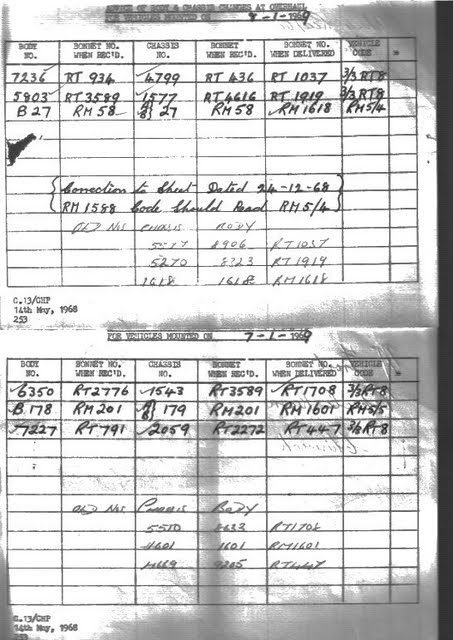 ADVICE OF BODY & CHASSIS CHANGES AT OVERHAUL
FOR VEHICLES MOUNTED ON 8-1-1969
BODY NO. BONNET NO. WHEN REC'D. CHASSIS NO. BONNET WHEN REC'D. BONNET NO. WHEN DELIVERED VEHICLE CODE
7236 RT 934 4799 RT 436 RT 1037 3/3 RT8
5803 RT 3589 1577 RT 4616 RT 1919 3/3 RT8
B 27 RM 58 27 RM 58 RM 1618 RM 5/4
Correction to Sheet Dated 24-12-68
RM 1588 Code Should Read RM 5/4
OLD Nos CHASSIS BODY
8906 RT1037
5270 8323 RT1919
1618 1618 RM1618
C.13/CHP
14th May, 1968
253
FOR VEHICLES MOUNTED ON 7-1-1969
BODY NO. BONNET NO. WHEN REC'D. CHASSIS NO. BONNET WHEN REC'D. BONNET NO. WHEN DELIVERED VEHICLE CODE
6350 RT2776 1543 RT3589 RT1708 3/3 RT8
B 178 RM201 179 RM201 RM 1601 RM5/5
7227 RT791 2059 RT2272 RT447 3/3 RT8
OLD Nos CHASSIS BODY
5510 RT1708
1601 1601 RM1601
4669 9205 RT447
C.13/CHP
14th May, 1968
253